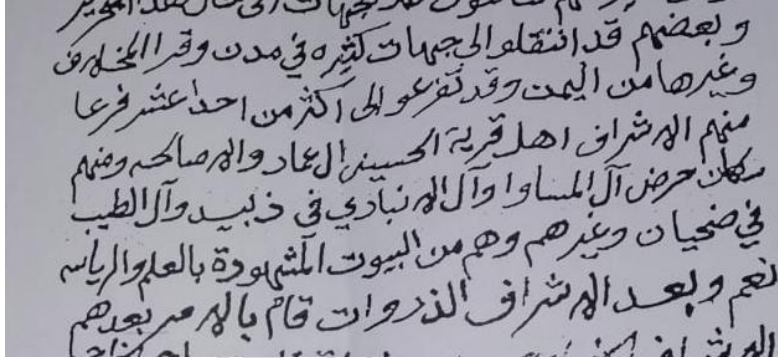 وبعضهم قد انتقلو الى جهات كثيره في مدن وقرا المخلاف
وغيرها من اليمن وقد تفرعو الى اكثر من احدا عشر فرعا
منهم الاشراف اهل قرية الحسيني ال عمار والاصالحه ومنهم
سكان حرض آل المساوا وآل الانباري في زبيد وآل الطيب
في ضحيان وغيرهم وهم من البيوت المشهودة بالعلم والرياسه
نعم وبعد الاشراف الذروات قام بالامر بعدهم